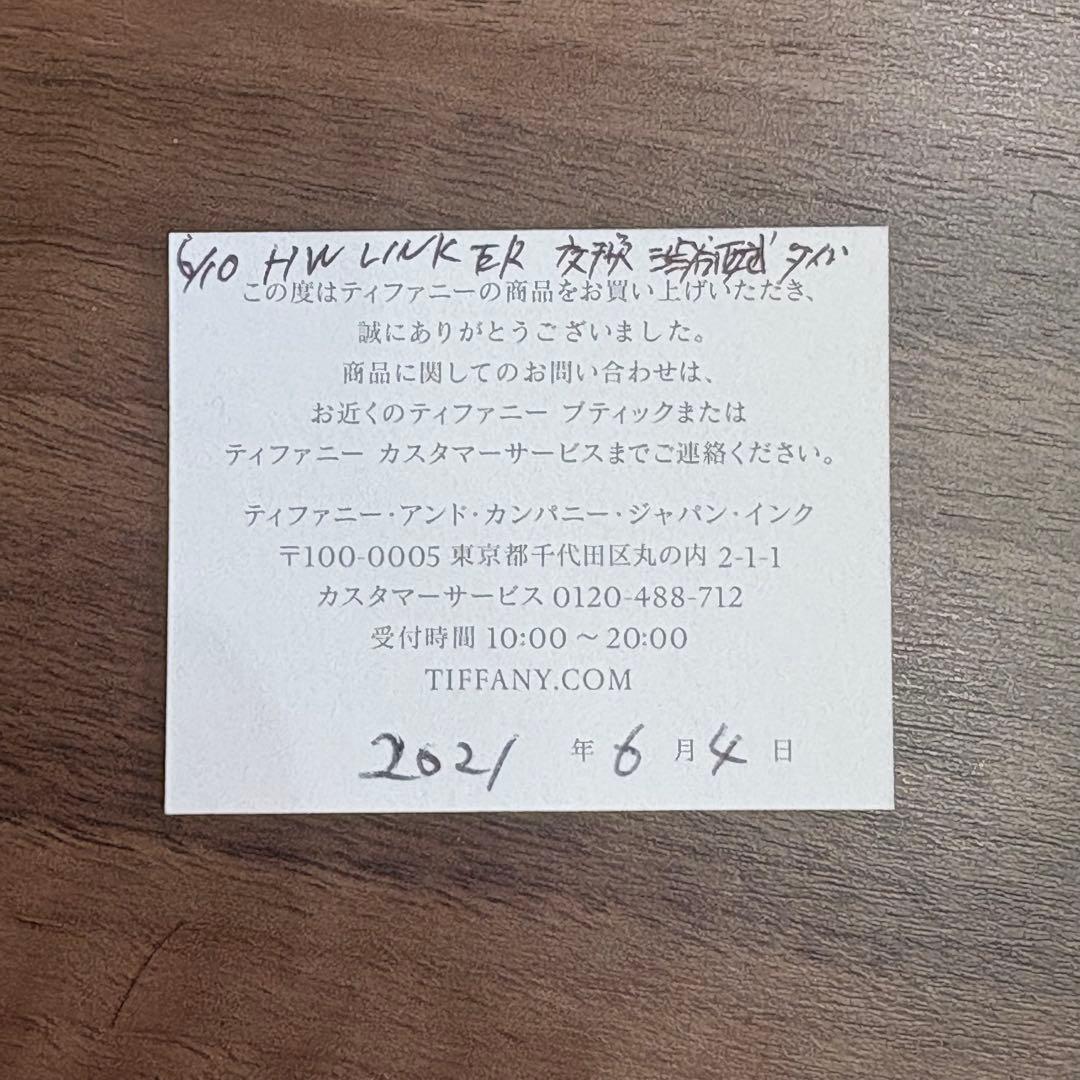 6/10 HW LINK ER 交換 渋谷西武
この度はティファニーの商品をお買い上げいただき、
誠にありがとうございました。
商品に関してのお問い合わせは、
お近くのティファニー ブティックまたは
ティファニー カスタマーサービスまでご連絡ください。
ティファニー・アンド・カンパニー・ジャパン・インク
〒100-0005 東京都千代田区丸の内 2-1-1
カスタマーサービス 0120-488-712
受付時間 10:00 ～ 20:00
TIFFANY.COM
2021 年 6 月 4 日